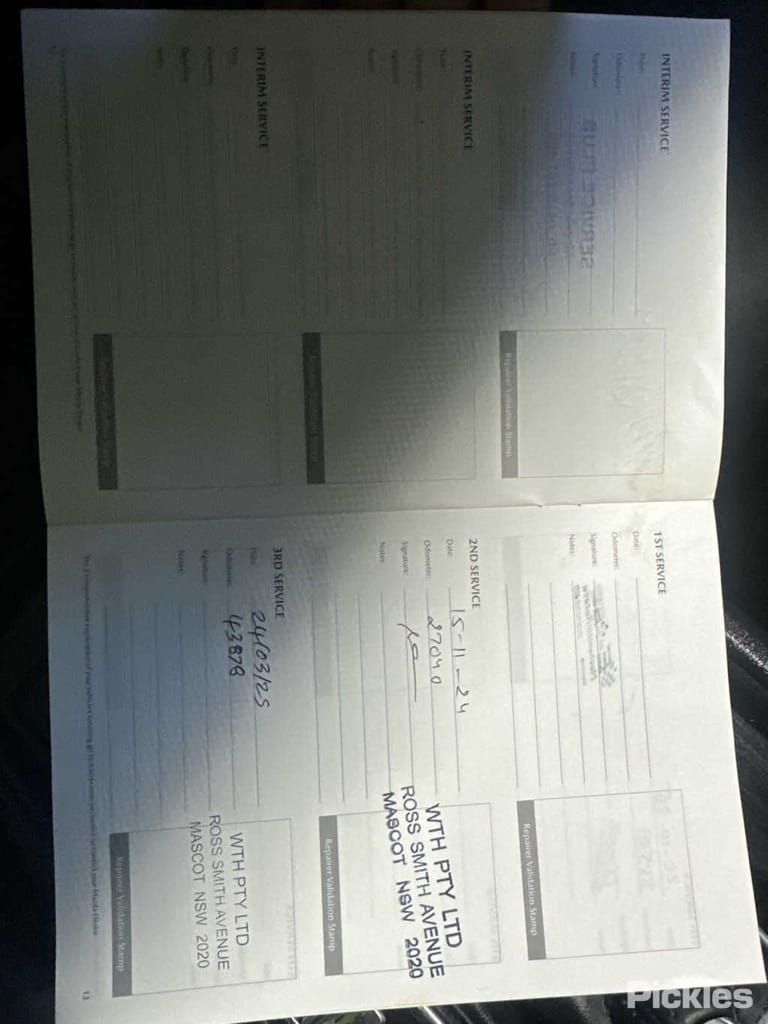 INTERIM SERVICE
Date:
Odometer:
Signature:
Notes:
Repairer Validation Stamp
INTERIM SERVICE
Date:
Odometer:
Signature:
Notes:
Repairer Validation Stamp
INTERIM SERVICE
Date:
Odometer:
Signature:
Notes:
Repairer Validation Stamp
1ST SERVICE
Date:
Odometer:
Signature:
Notes:
Repairer Validation Stamp
2ND SERVICE
Date: 15-11-24
Odometer: 27040
Signature:
Notes:
WTH PTY LTD
ROSS SMITH AVENUE
MASCOT NSW 2020
Repairer Validation Stamp
3RD SERVICE
Date: 24/03/25
Odometer: 43878
Signature:
Notes:
WTH PTY LTD
ROSS SMITH AVENUE
MASCOT NSW 2020
Repairer Validation Stamp
13
Pickles